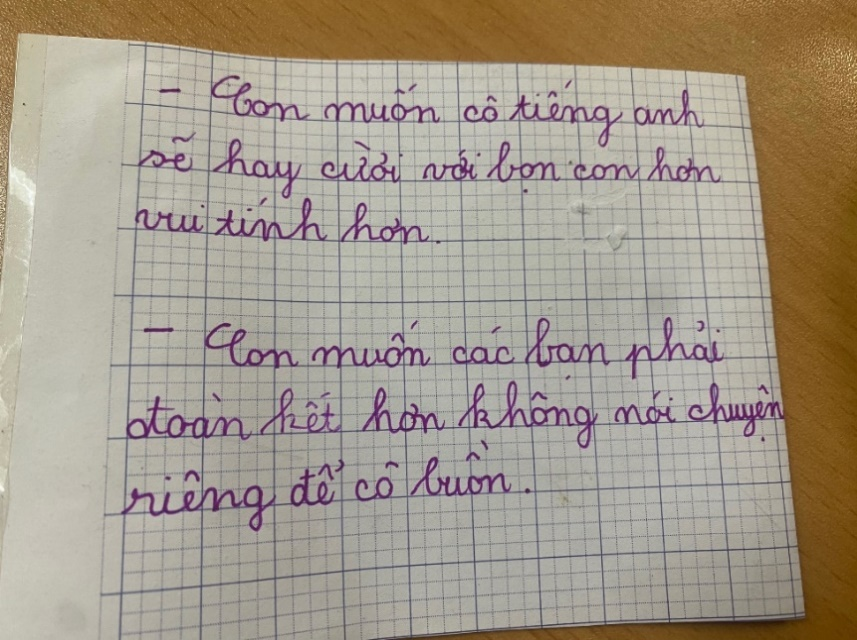 - Con muốn cô tiếng anh
sẽ hay cười với bọn con hơn
vui tính hơn.
- Con muốn các bạn phải
đoàn kết hơn không nói chuyện
riêng để cô buồn.